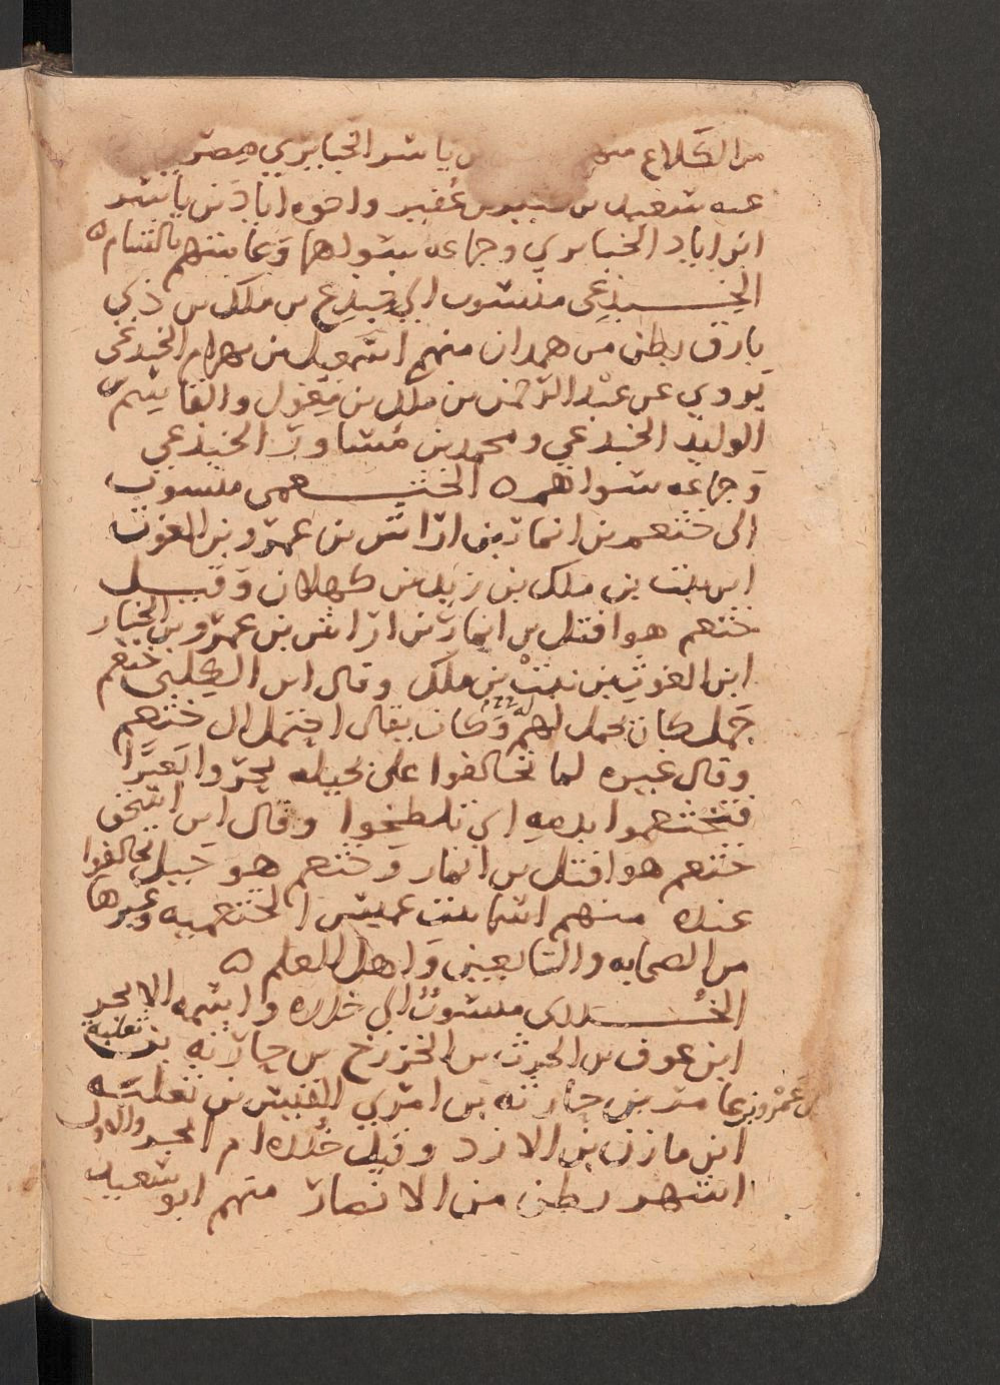 من الكلاع منهم ياسر الخبايري بمصر
عنه سعيد بن عفير واخوه اياد بن ياسر
ابن اياد الخبايري وجماعه سواهما وعامتهم بالشام ه
الخبذعي منسوب الى خبذع بن ملك بن ذي
بارق بطن من همدان منهم اسمعيل بن بهرام الخبذعي
يروي عن عبد الرحمن بن ملك بن مغول والقاسم بن
الوليد الخبذعي ومحمد بن مساور الخبذعي
وجماعه سواهم ه الخثعمي منسوب
الى خثعم بن انمار بن اراش بن عمرو بن الغوث
ابن نبت بن ملك بن زيد بن كهلان وقيل
خثعم هو افتل بن انمار بن اراش بن عمرو بن الخيار
ابن الغوث بن نبت بن ملك وقال ابن الكلبي خثعم
جمل كان يحمل لهم وكان يقال احتمل ال خثعم
وقال غيره لما تحالفوا على بجيله نحروا بعيرا
فتخثعموا بدمه اي تلطخوا وقال ابن اسحق
خثعم هو افتل بن انمار وخثعم هو جبل تحالفوا
عنده منهم اسما بنت عميس الخثعميه وغيرها
من الصحابه والتابعين واهل العلم ه
الخدري منسوب الى خدره واسمه الابجر
ابن عوف بن الحرث بن الخزرج بن حارثه بن ثعلبه
بن عمرو بن عامر بن حارثه بن امري القيس بن ثعلبه
ابن مازن بن الازد وقيل خدره ام الابجر والاول
اشهر بطن من الانصار منهم ابو سعيد